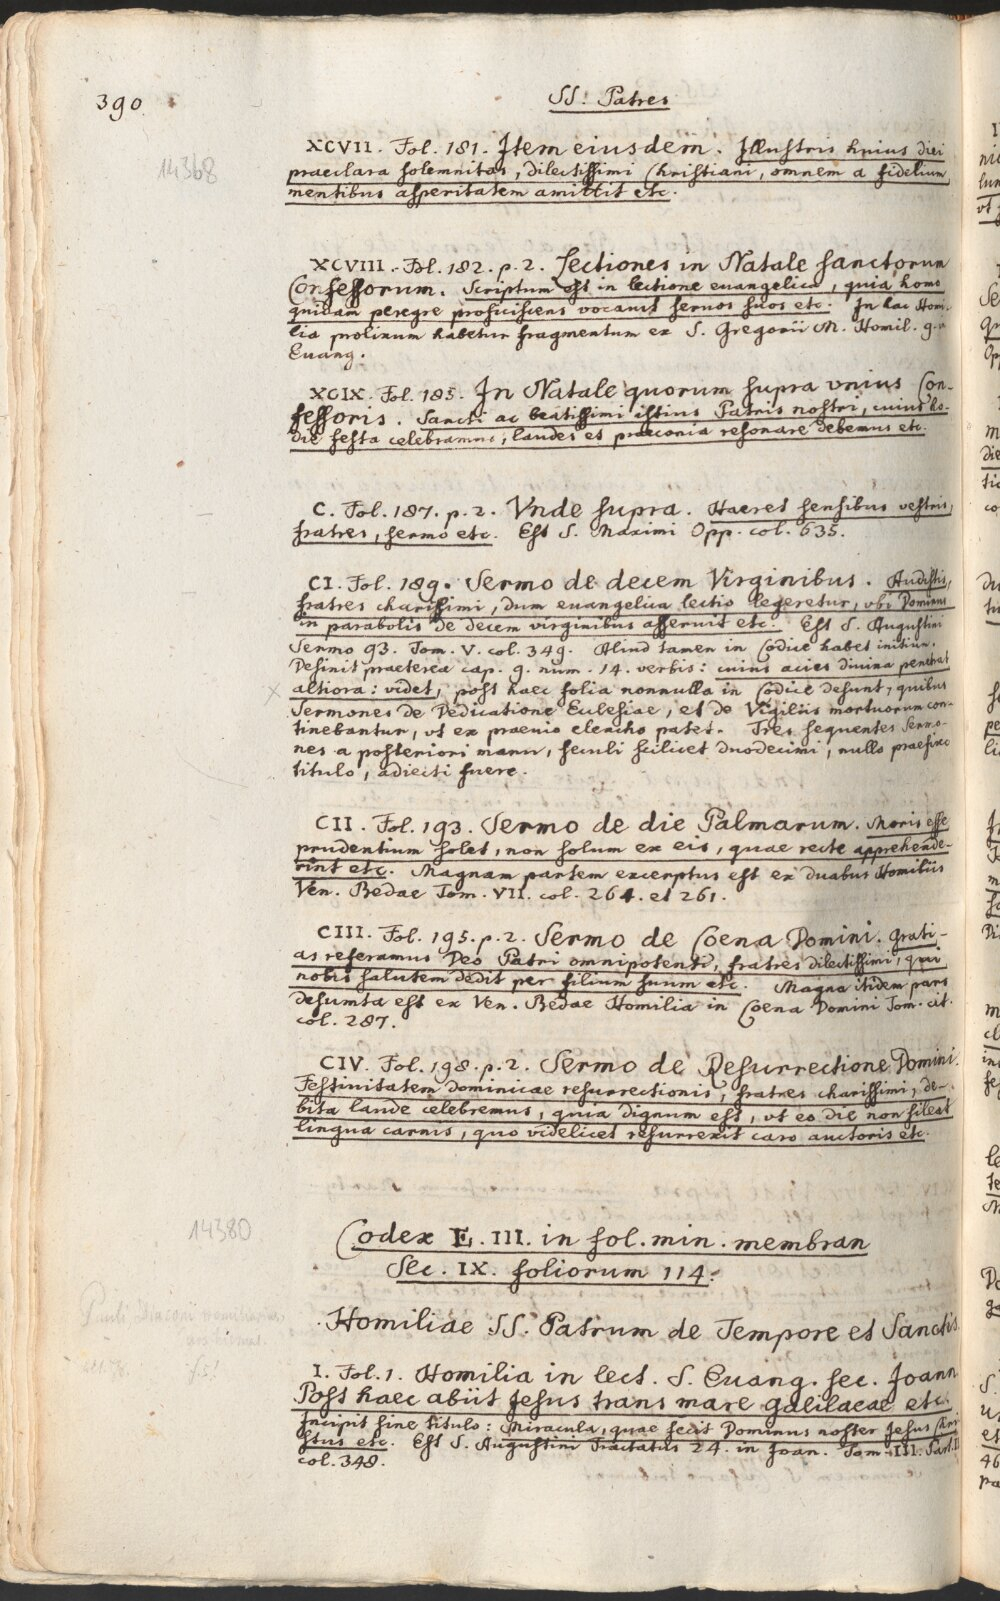 390.
SS. Patres
14368
XCVII. Fol. 181. Item eiusdem. Illustris huius diei
praeclara solemnitas, dilectissimi Christiani, omnem a fidelium
mentibus asperitatem amittit etc.
XCVIII. Fol. 182. p. 2. Lectiones in Natale sanctorum
Confessorum. Scriptum est in lectione euangelica, quia homo
quidam peregre proficisens vocauit seruos suos etc. In hac Homi-
lia prolixum habetur fragmentum ex S. Gregorii M. Homil. 9. in
Euang.
XCIX. Fol. 185. In Natale quorum supra vnius Con-
fessoris. Sancti ac beatissimi istius Patris nostri, cuius ho-
die festa celebramus, laudes et praeconia resonare debemus etc.
C. Fol. 187. p. 2. Vnde supra. Haeret sensibus vestris,
fratres, sermo etc. Est S. Maximi Opp. col. 635.
CI. Fol. 189. Sermo de decem Virginibus. Audistis,
fratres charissimi, dum euangelica lectio legeretur, vbi Dominus
in parabolis de decem virginibus asseruit etc. Est S. Augustini
Sermo 93. Tom. V. col. 349. Aliud tamen in Codice habet initium.
Definit praeterea cap. 9. num. 14. verbis: cuius acies diuina penetrat
x altiora: videt, post haec folia nonnulla in Codice desunt, quibus
Sermones de Dedicatione Ecclesiae, et de Vigiliis mortuorum con-
tinebantur, vt ex praeuio elencho patet. Tres sequentes Sermo-
nes a posteriori manu, seculi scilicet duodecimi, nullo praefixo
titulo, adiecti fuere.
CII. Fol. 193. Sermo de die Palmarum. Moris esse
prudentium solet, non solum ex eis, quae recte apprehende-
rint etc. Magnam partem excerptus est ex duabus Homiliis
Ven. Bedae Tom. VII. col. 264. et 261.
CIII. Fol. 195. p. 2. Sermo de Coena Domini. Grati-
as referamus Deo Patri omnipotenti, fratres dilectissimi, qui
nobis salutem dedit per filium suum etc. Magna itidem pars
desumta est ex Ven. Bedae Homilia in Coena Domini Tom. cit.
col. 287.
CIV. Fol. 198. p. 2. Sermo de Resurrectione Domini.
Festiuitatem dominicae resurrectionis, fratres charissimi, de-
bita laude celebremus, quia dignum est, vt eo die non sileat
lingua carnis, quo videlicet resurrexit caro auctoris etc.
14380
Codex E. III. in fol. min. membran
Sec. IX. foliorum 114.
Pauli Diaconi
Homiliae SS. Patrum de Tempore et Sanctis.
I. Fol. 1. Homilia in lect. S. Euang. sec. Joann
Post haec abiit Jesus trans mare galilaeae etc.
Incipit sine titulo: Miracula, quae fecit Dominus noster Jesus Chri-
stus etc. Est S. Augustini Tractatus 24. in Joan. Tom. III. Part. II
col. 348.